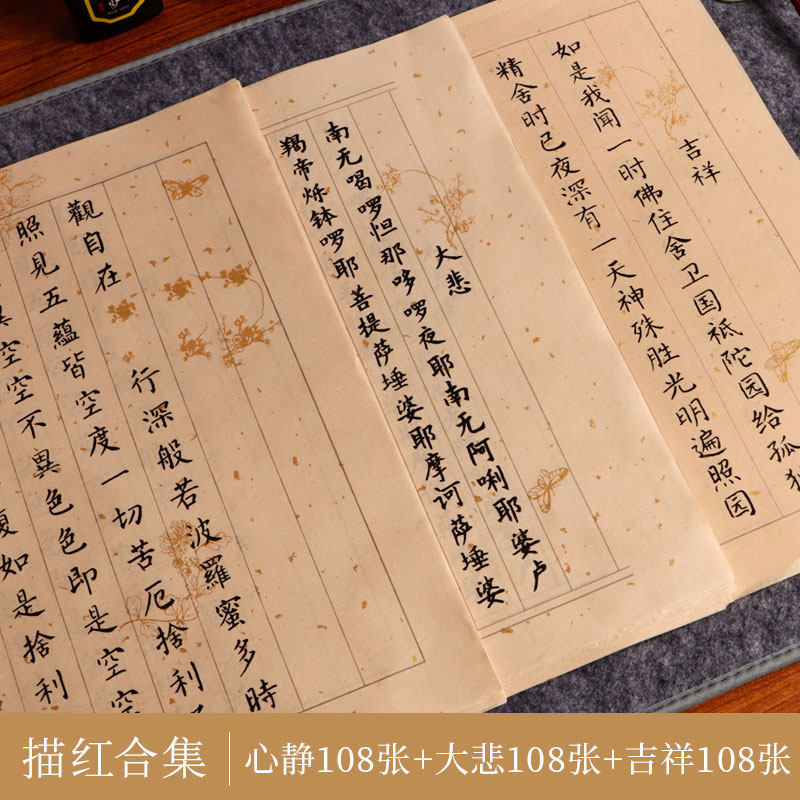 吉祥
如是我闻一时佛住舍卫国祇陀园给孤
精舍时已夜深有一天神殊胜光明遍照园
大悲
南无喝啰怛那哆啰夜耶南无阿唎耶婆卢
羯帝烁钵啰耶菩提萨埵婆耶摩诃萨埵婆
觀自在 行深般若波羅蜜多時
照見五蘊皆空度一切苦厄捨利
異空空不異色色即是空空
復如是捨利
描红合集 心静108张+大悲108张+吉祥108张